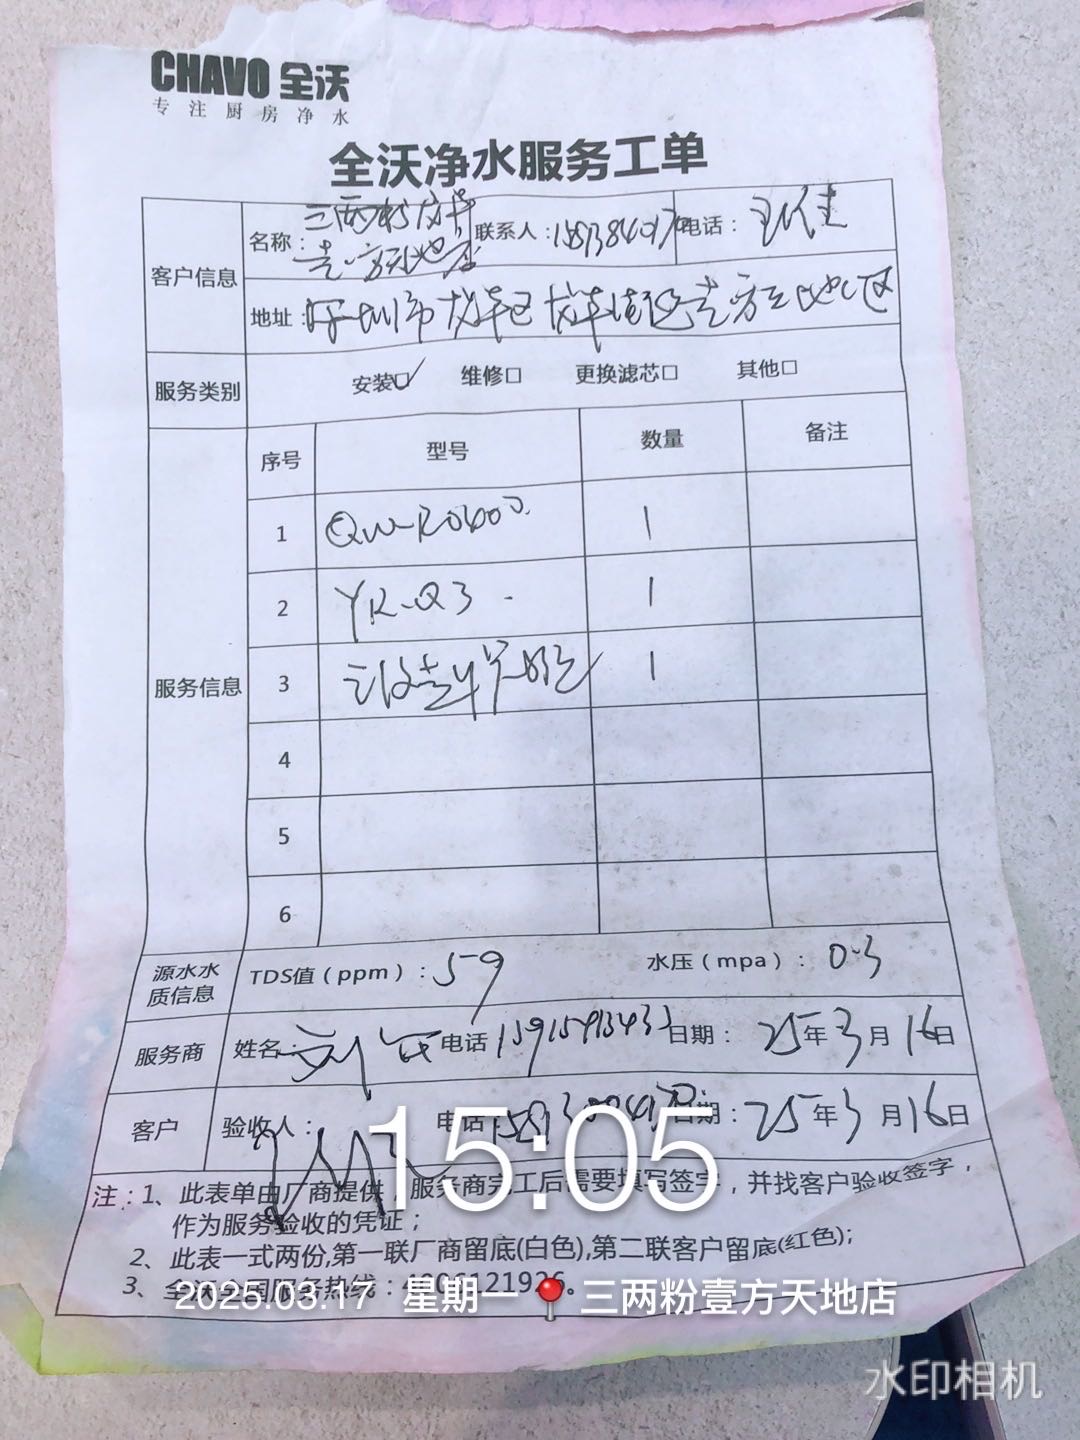 CHAVO 全沃
专注厨房净水
全沃净水服务工单
客户信息
名称：三两粉龙华
壹方天地店
联系人：
电话：
地址：深圳市龙华区龙华街道壹方天地C区
服务类别
安装☑ 维修□ 更换滤芯□ 其他□
服务信息
序号 型号 数量 备注
1 QW-RO400 1
2 YR-Q3 1
3 1
4
5
6
源水水质信息
TDS值（ppm）：59 水压（mpa）：0.3
服务商 姓名： 电话 日期：25年3月16日
客户 验收人： 电话： 日期：25年3月16日
注：1、此表单由厂商提供，服务商完工后需要填写签字，并找客户验收签字，
作为服务验收的凭证；
2、此表一式两份,第一联厂商留底(白色),第二联客户留底(红色);
3、全沃全国服务热线：4006121926。
15:05
2025.03.17 星期一 三两粉壹方天地店
水印相机